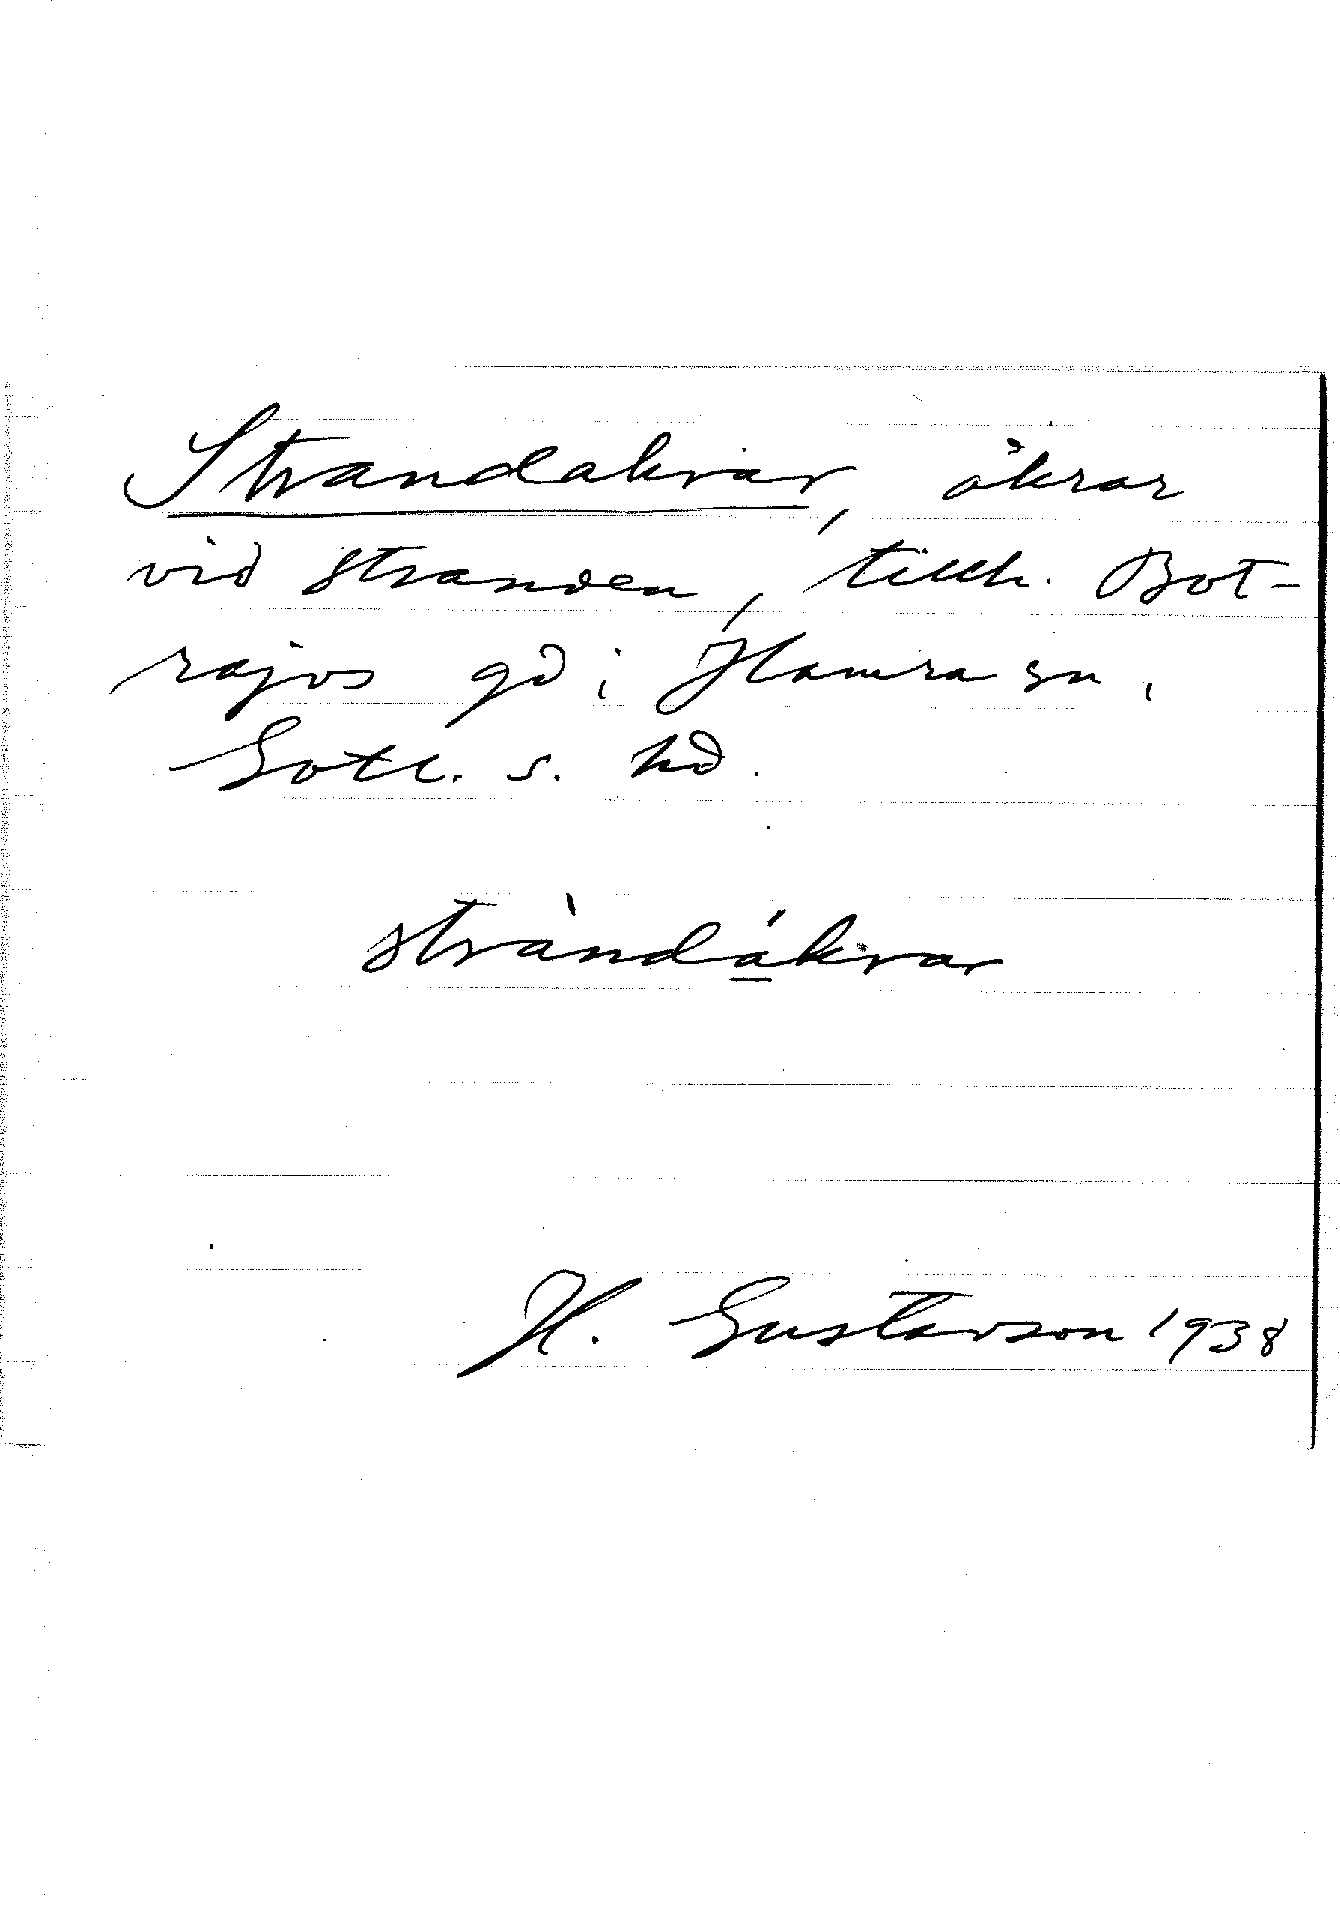 Strandakrar, åkrar
vid stranden, tillh. Bot-
rajvs gd i Hamra sn,
Gotl. s. hd.
stràndákrar
H. Gustavson 1938